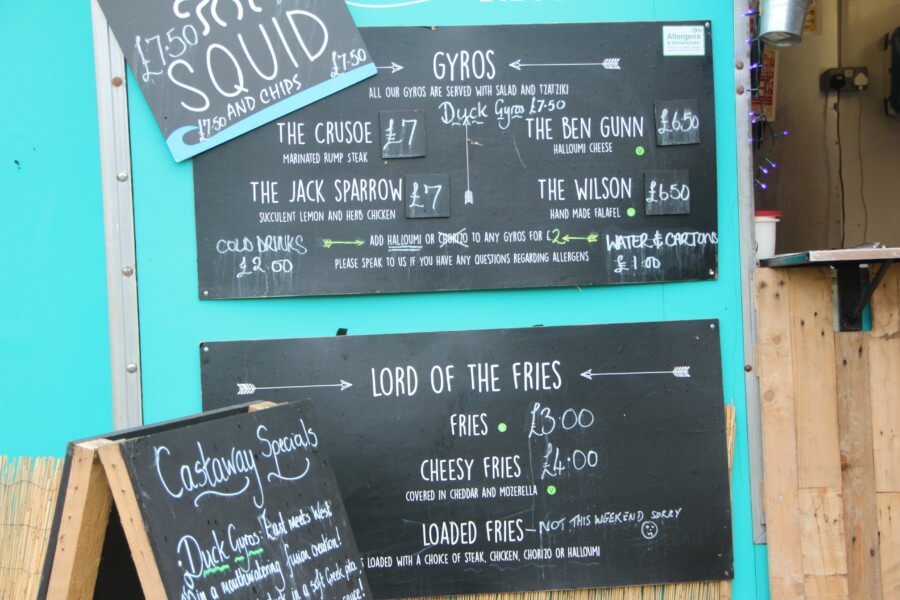 £7.50
SQUID
£7.50
AND CHIPS
£7.50
Allergens
GYROS
ALL OUR GYROS ARE SERVED WITH SALAD AND TZATZIKI
Duck Gyros £7.50
THE CRUSOE £7
MARINATED RUMP STEAK
THE BEN GUNN £6.50
HALLOUMI CHEESE
THE JACK SPARROW £7
SUCCULENT LEMON AND HERB CHICKEN
THE WILSON £6.50
HAND MADE FALAFEL
COLD DRINKS
£2.00
ADD HALLOUMI OR CHORITO TO ANY GYROS FOR £2
WATER & CARTONS
£1.00
PLEASE SPEAK TO US IF YOU HAVE ANY QUESTIONS REGARDING ALLERGENS
LORD OF THE FRIES
FRIES £3.00
CHEESY FRIES £4.00
COVERED IN CHEDDAR AND MOZERELLA
LOADED FRIES - NOT THIS WEEKEND SORRY
LOADED WITH A CHOICE OF STEAK, CHICKEN, CHORITO OR HALLOUMI
Castaway Specials
Duck Gyros: East meets West
in a mouthwatering fusion creation!
in a soft Greek pita